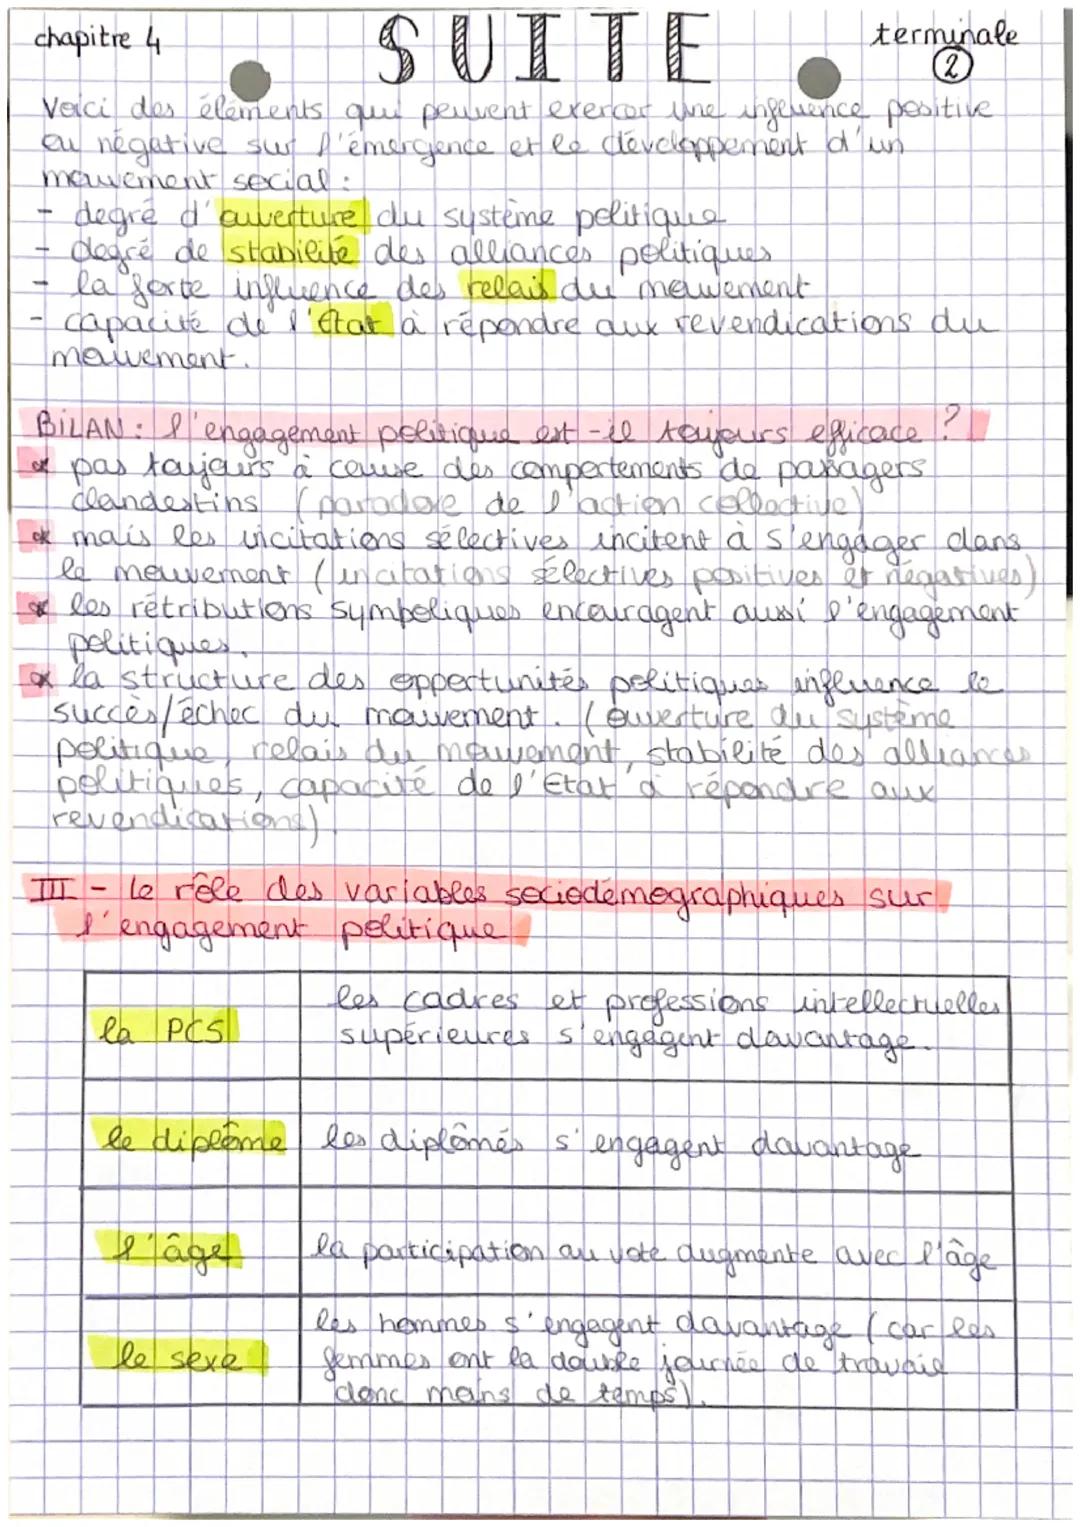 chapitre 4
SUITE
terminale
2
Voici des éléments qui peuvent exercer une influence positive
ou négative sur l'émergence et le développement d'un
mouvement social :
- degré d'ouverture du système politique
- degré de stabilité des alliances politiques
- la forte influence des relais du mouvement
- capacité de l'État à répondre aux revendications du
mouvement.
BILAN : l'engagement politique est-il toujours efficace ?
* pas toujours à cause des comportements de passagers
clandestins (paradoxe de l'action collective)
* mais les incitations sélectives incitent à s'engager dans
le mouvement (incitations sélectives positives et négatives)
* les rétributions symboliques encouragent aussi l'engagement
politiques.
* la structure des opportunités politiques influence le
succès/échec du mouvement. (ouverture du système
politique, relais du mouvement, stabilité des alliances
politiques, capacité de l'État à répondre aux
revendications).
III - Le rôle des variables sociodémographiques sur
l'engagement politique
la PCS
les cadres et professions intellectuelles
supérieures s'engagent davantage.
le diplôme
les diplômés s'engagent davantage
l'âge
la participation au vote augmente avec l'âge
le sexe
les hommes s'engagent davantage (car les
femmes ont la double journée de travail
donc moins de temps).